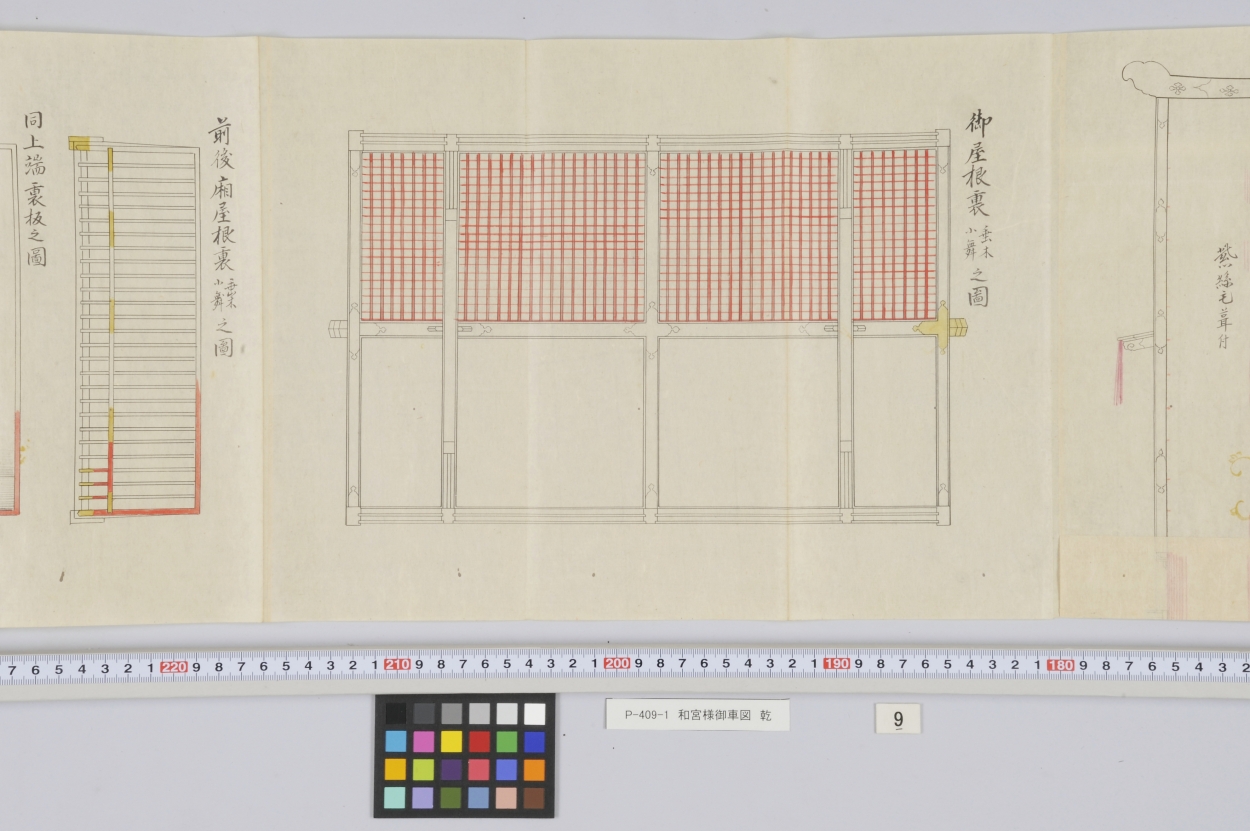 葺絲毛葺付
御屋根裏垂木小舞之圖
前後廂屋根裏垂木小舞之圖
同上端裏板之圖
7 6 5 4 3 2 1 220 9 8 7 6 5 4 3 2 1 210 9 8 7 6 5 4 3 2 1 200 9 8 7 6 5 4 3 2 1 190 9 8 7 6 5 4 3 2 1 180 9 8 7 6 5 4 3 2
P-409-1 和宮様御車図 乾
9